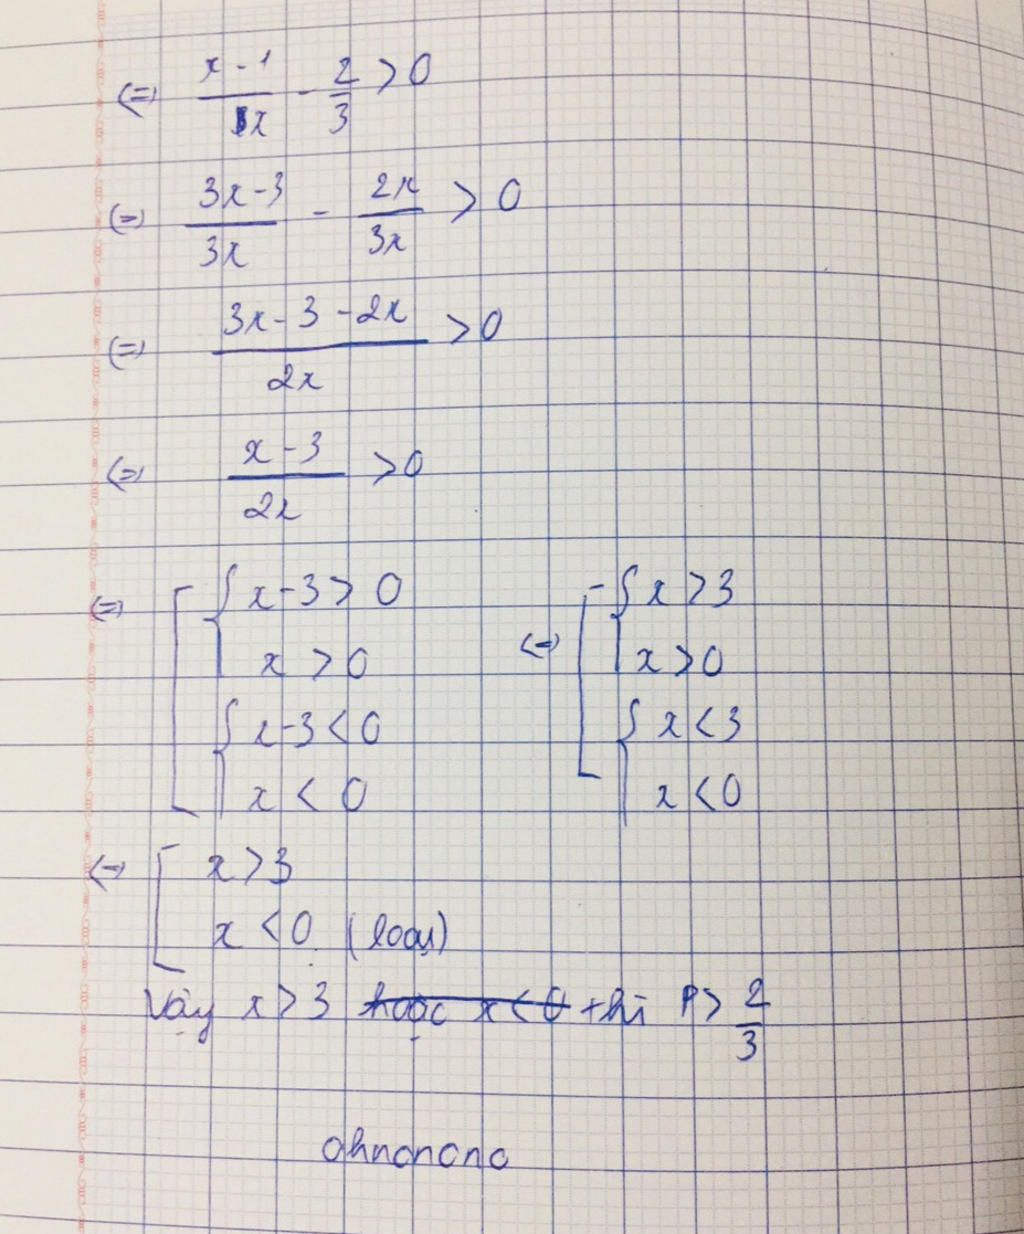 (=) x - 1 / x - 2/3 > 0
(=) 3x - 3 / 3x - 2x / 3x > 0
(=) 3x - 3 - 2x / 2x > 0
(=) x - 3 / 2x > 0
(=) [ { x - 3 > 0 (=) [ { x > 3
x > 0 x > 0
{ x - 3 < 0 { x < 3
x < 0 x < 0
(=) [ x > 3
x < 0 (loại)
Vậy x > 3 hoặc x < 0 thì P > 2/3
ohnonono